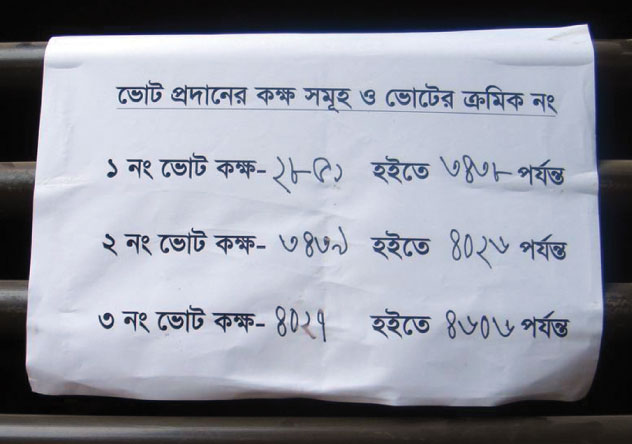 ভোট প্রদানের কক্ষ সমূহ ও ভোটের ক্রমিক নং
১ নং ভোট কক্ষ- ২৮৫১ হইতে ৩৪৩৮ পর্যন্ত
২ নং ভোট কক্ষ- ৩৪৩৯ হইতে ৪০২৬ পর্যন্ত
৩ নং ভোট কক্ষ- ৪০২৭ হইতে ৪৬০৬ পর্যন্ত